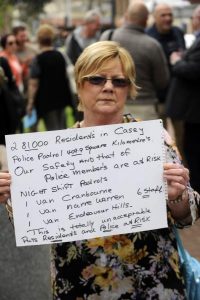 281000 Residents in Casey
Police Patrol 409 Square Kilometre's.
Our Safety and that of
Police Members are at Risk
Night Shift Patrols
1 Van Cranbourne
1 Van Narre Warren 6 Staff
1 Van Endeavour Hills.
This is totally unacceptable
Puts Residents and Police at Risk